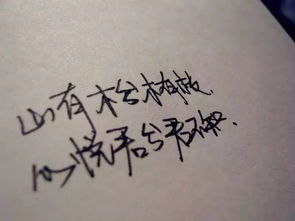 山有木兮木有枝.
心悦君兮君不知.